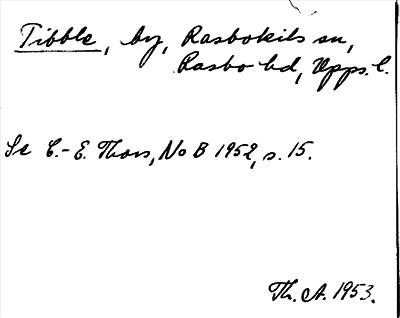 Tibble, by, Rasbokils sn,
Rasbo hd, Upps. l.
Se C.-E. Thors, NoB 1952, s. 15.
Th. A. 1953.